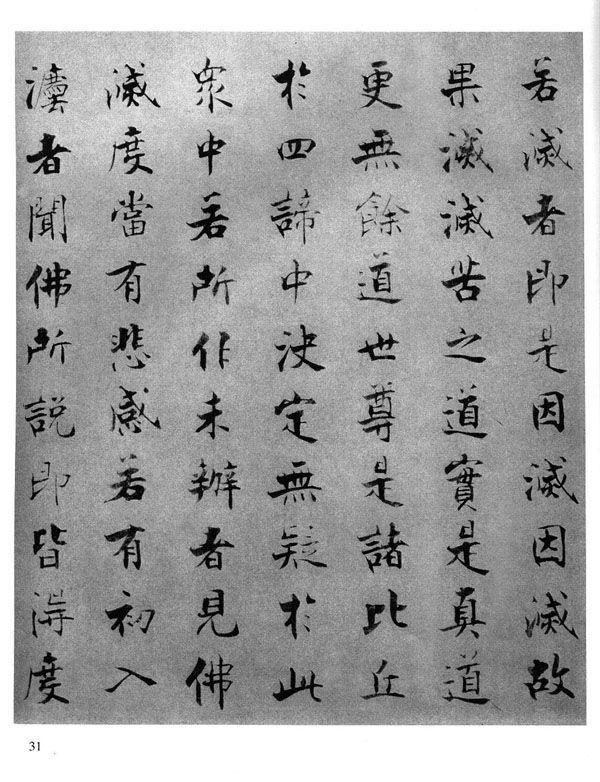 若滅者即是因滅因滅故
果滅滅苦之道實是真道
更無餘道世尊是諸比丘
於四諦中決定無疑於此
衆中若所作未辦者見佛
滅度當有悲感若有初入
灋者聞佛所説即皆得度
31